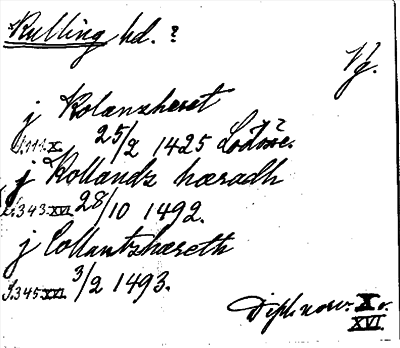 Kulling hd. ?
Vg.
j Kolanzheret
S.111.X. 25/2 1425 Lödöse.
j Kollandz hæradh
S.343.XVI. 28/10 1492.
j Collantzhæreth
S.345.XVI. 3/2 1493.
Dipl. norv. X o.
XVI.